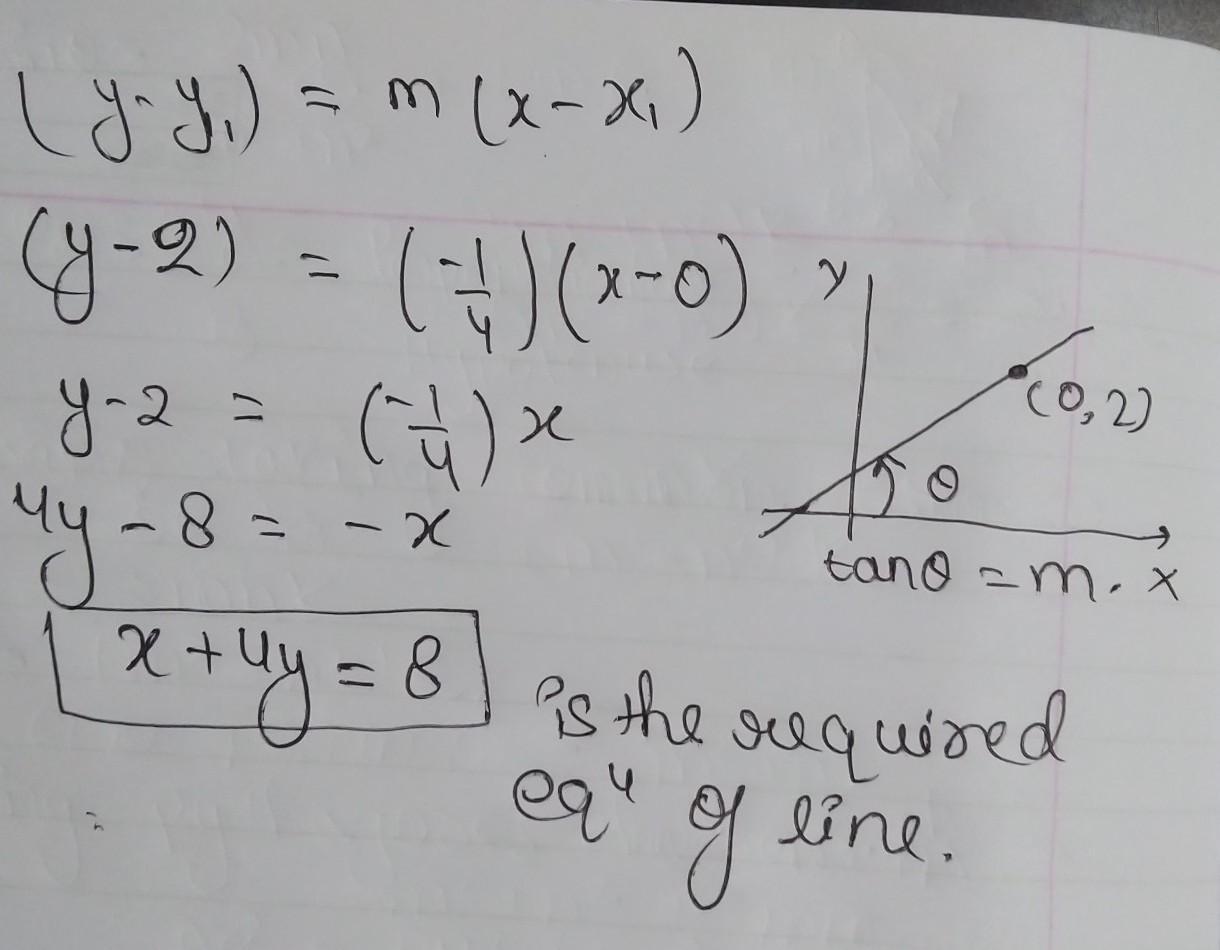 (y-y₁) = m(x-x₁)
(y-2) = (-1/4)(x-0)
y-2 = (-1/4)x
4y-8 = -x
x+4y=8
is the required
eqⁿ of line.
y
(0,2)
θ
tanθ=m.
x